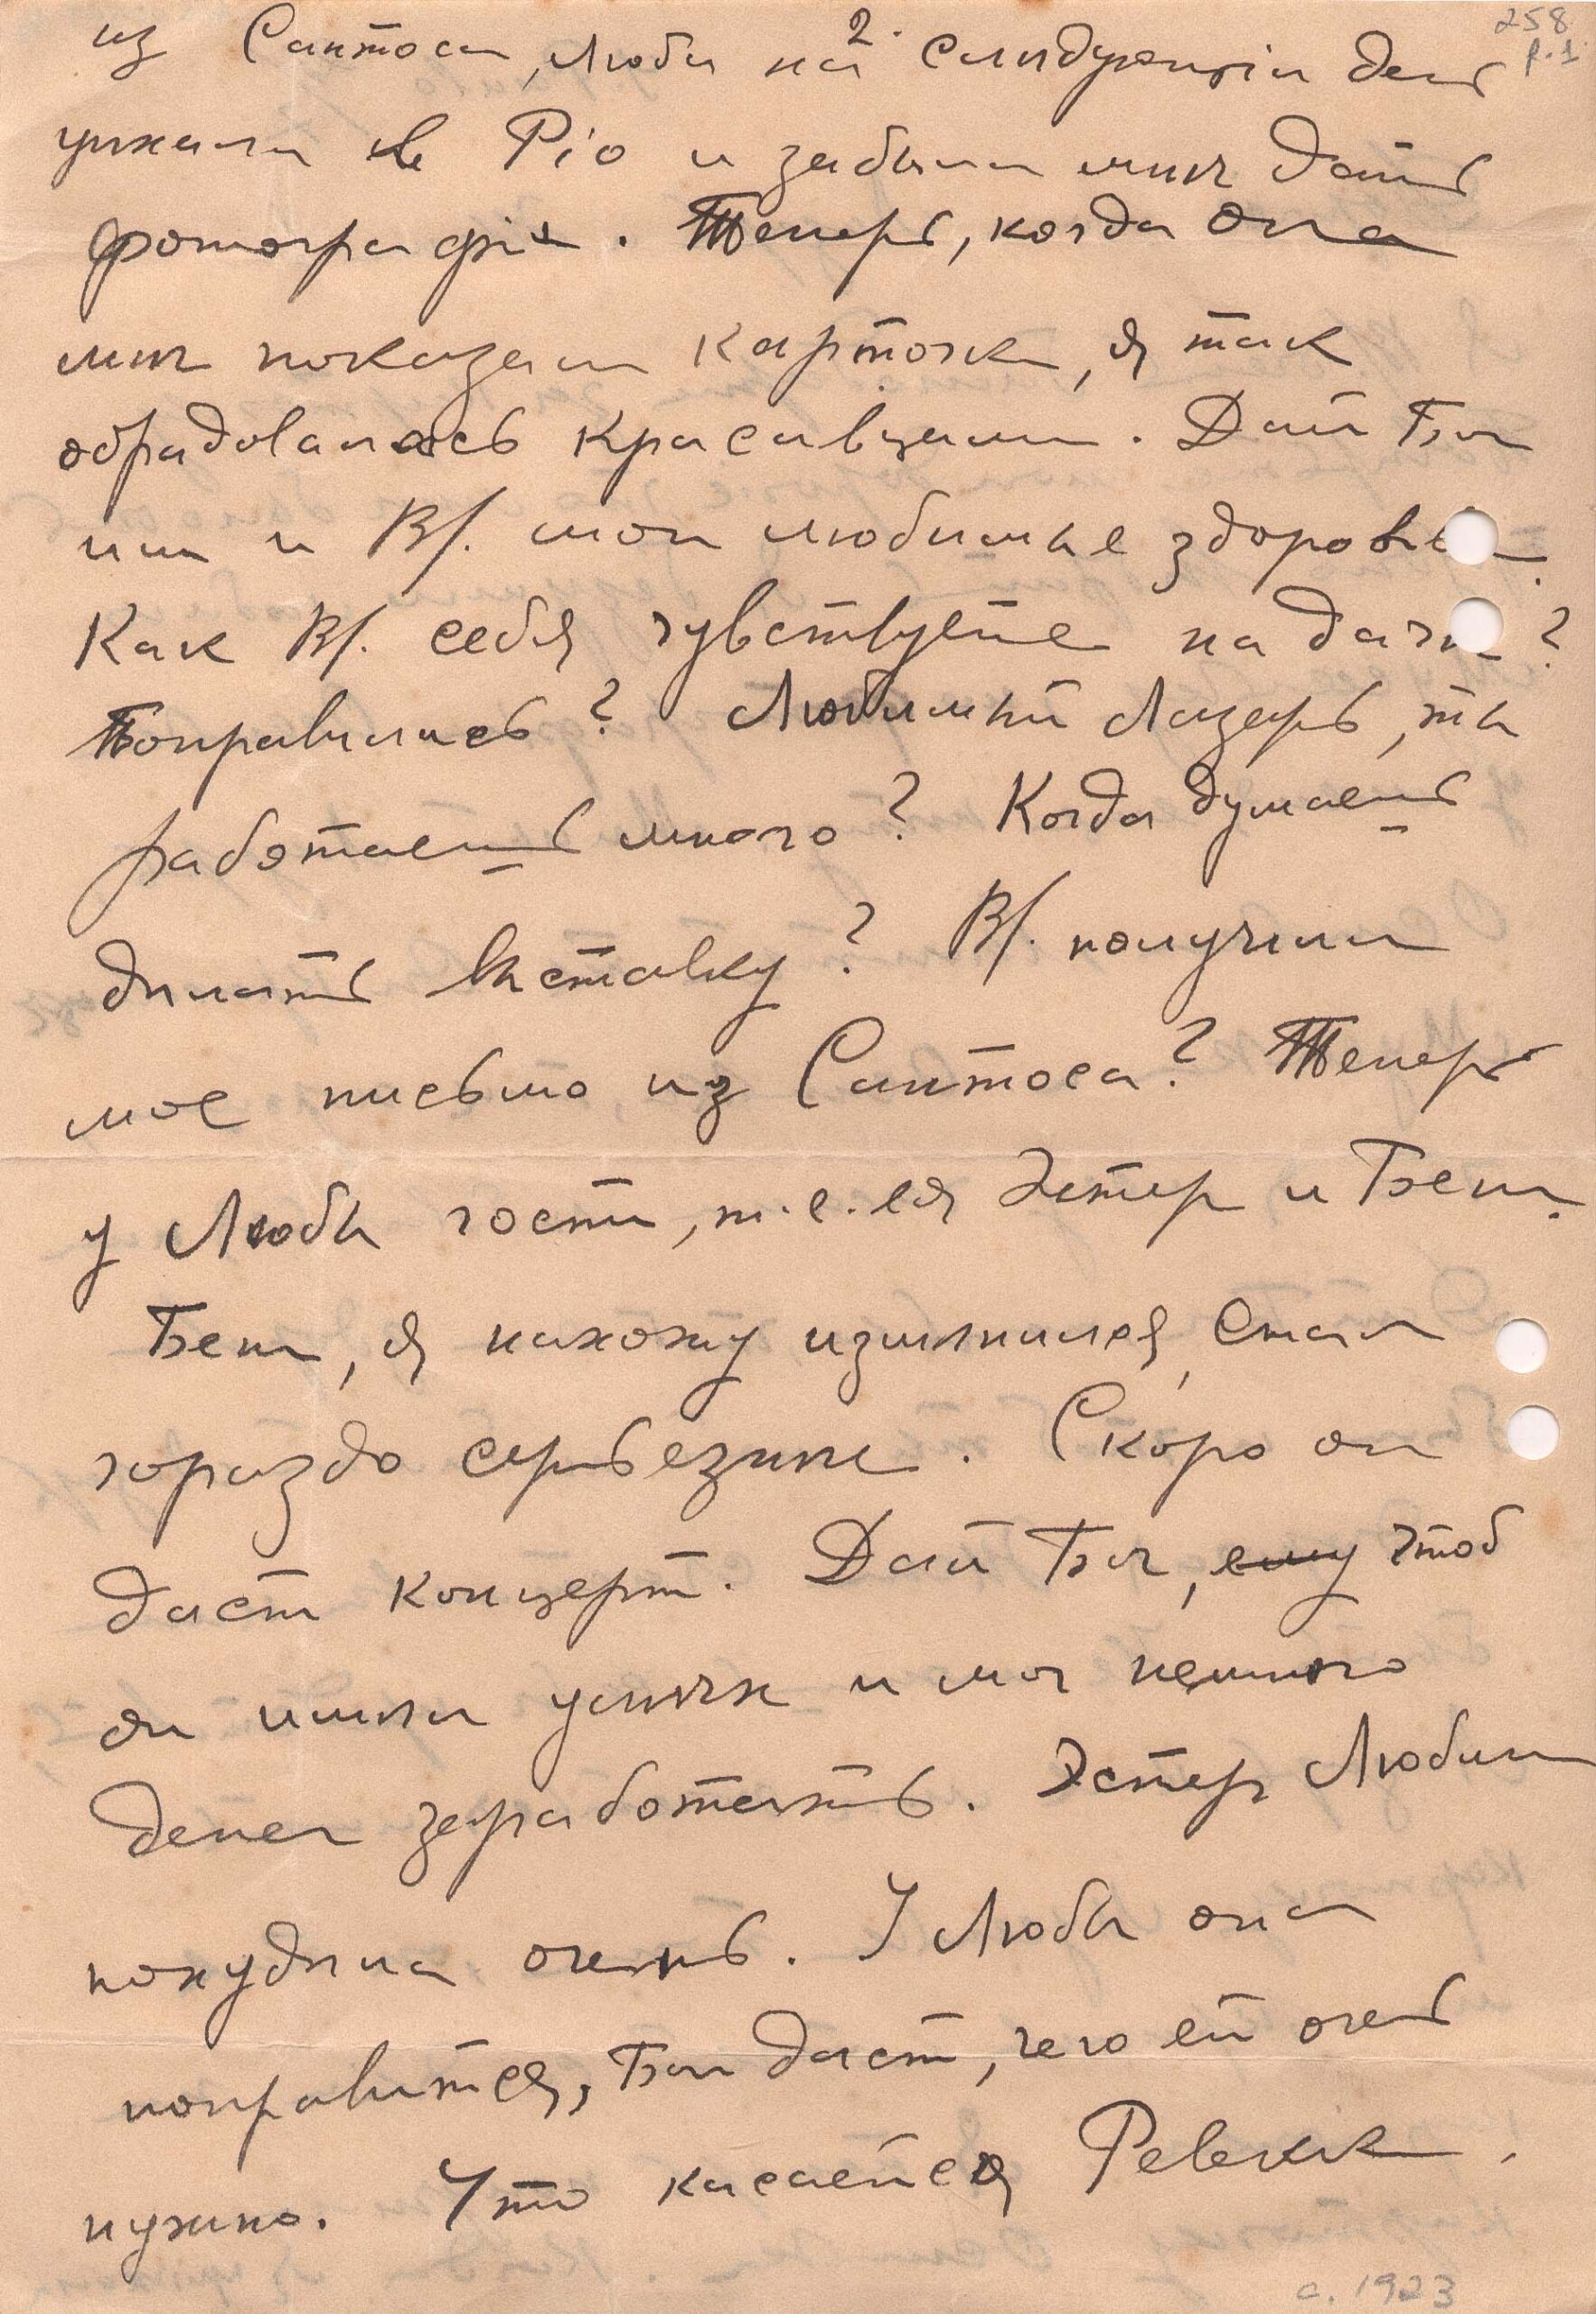 2.
258
p. 1
из Сантоса, Люба на слѣдующій день
уѣхала в Ріо и забыла мнѣ дать
фотографіи. Теперь, когда она
мнѣ показала карточки, я так
обрадовалась красавцами. Дай Бог
им и Вам мои любимые здоровья.
Как Вы себя чувствуете на дачѣ?
Поправились? Любимый Лазарь, ты
работаешь много? Когда думаешь
дѣлать выставку? Вы получили
мое письмо из Сантоса? Теперь
у Любы гости, т.е. ея Эстер и Беня.
Беня, я нахожу измѣнился, стал
гораздо серьезнѣе. Скоро он
даст концерт. Дай Бог, ему чтоб
он имѣл успѣх и мог немного
денег заработать. Эстер Любина
похудѣла очень. У Любы она
поправится, Бог даст, чего ей очень
нужно. Что касается Ревекки,
c. 1923